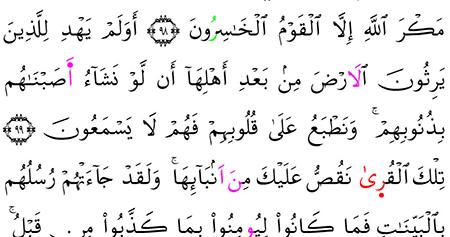 مَكْرَ اَللَّهِ إِلَّا اَلْقَوْمُ اَلْخَٰسِرُونَ ﴿٩٨﴾ أَوَلَمْ يَهْدِ لِلَّذِينَ
يَرِثُونَ اَلَارْضَ مِنۢ بَعْدِ أَهْلِهَا أَن لَّوْ نَشَآءُ أَصَبْنَٰهُم
بِذُنُوبِهِمْ ۚ وَنَطْبَعُ عَلَىٰ قُلُوبِهِمْ فَهُمْ لَا يَسْمَعُونَ ﴿٩٩﴾
تِلْكَ اَلْقُرىٰ نَقُصُّ عَلَيْكَ مِنَ اَنۢبَآئِهَا ۚ وَلَقَدْ جَآءَتْهُمْ رُسُلُهُم
بِالْبَيِّنَٰتِ فَمَا كَانُوا۟ لِيُومِنُوا۟ بِمَا كَذَّبُوا۟ مِن قَبْلُ ۚ